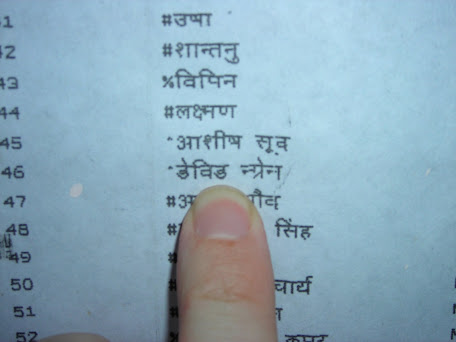 41 #उषा
42 #शान्तनु
43 %विपिन
44 #लक्ष्मण
45 ^आशीष सूद
46 ^डेविड न्ग्रेन
47 #अ
48 # सिंह
49 #
50 # चार्य
51 #
52